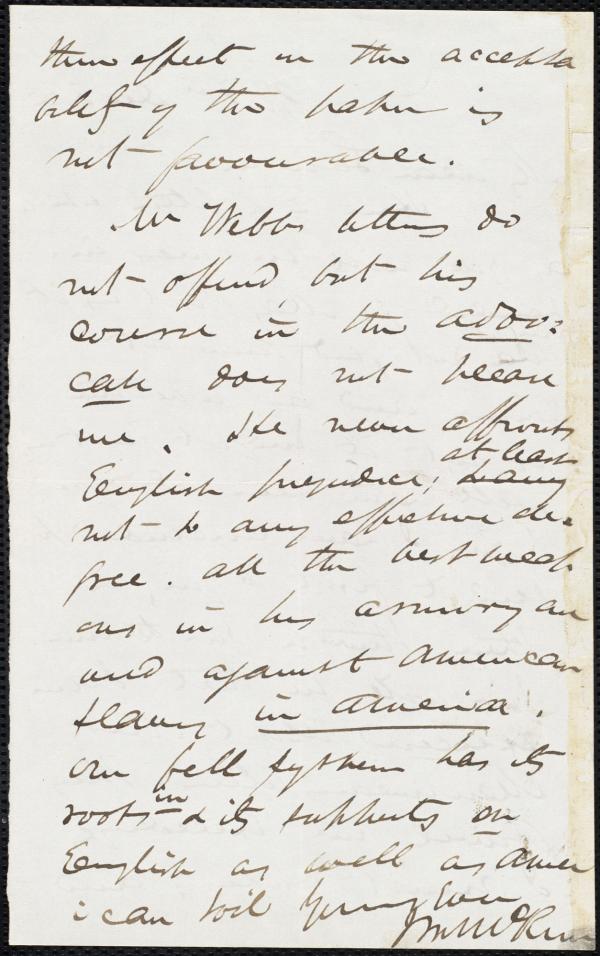 their effect on the accepta
bility of the paper is
not favourable.
Mr Webbs letters do
not offend, but his
course in the advo=
cate does not become
me. He never affronts
English prejudice; at least
not to any effective de=
gree. all the best weap
ons in his armory are
used against American
slavery in America.
our fell system has its
roots in & its supports on
English as well as Amer
ican soil Yours ever
J M McKim